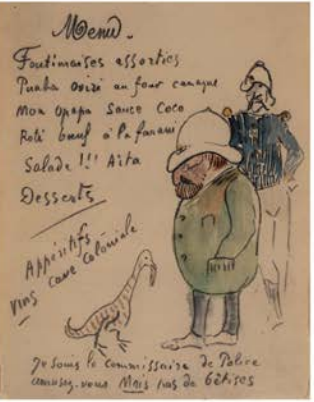 Menu.
Foutimaises assorties
Puaka oviri au four canaque
Moa opapa Sauce Coco
Roti bœuf à la farani
Salade !!! Aita
Desserts
Appéritifs
Vins cave Coloniale
Je souis le commissaire de Police
amusez-vous Mais pas de bêtises